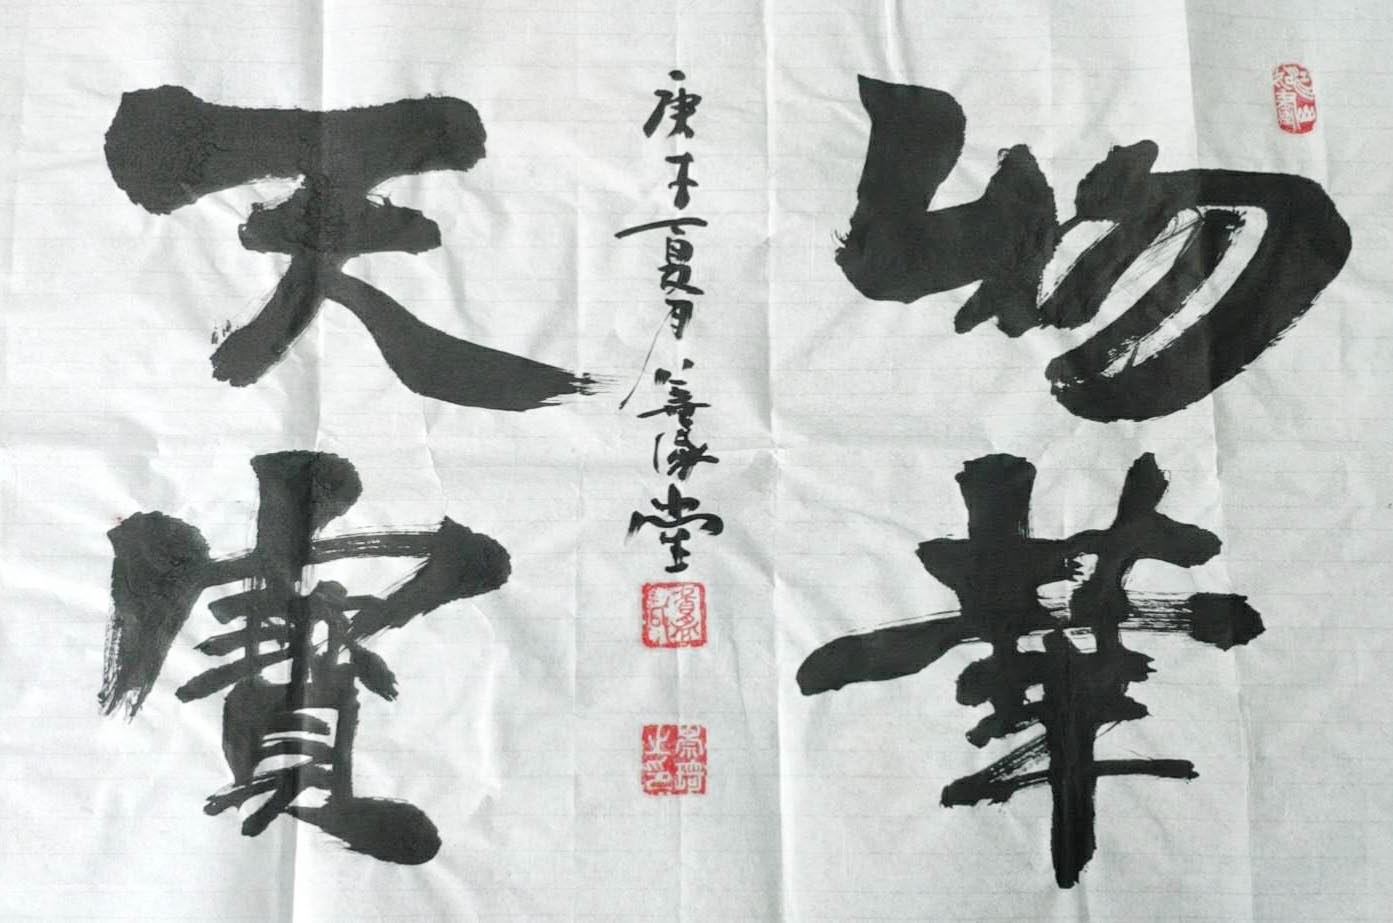 物華
天寶
庚子夏月善缘堂